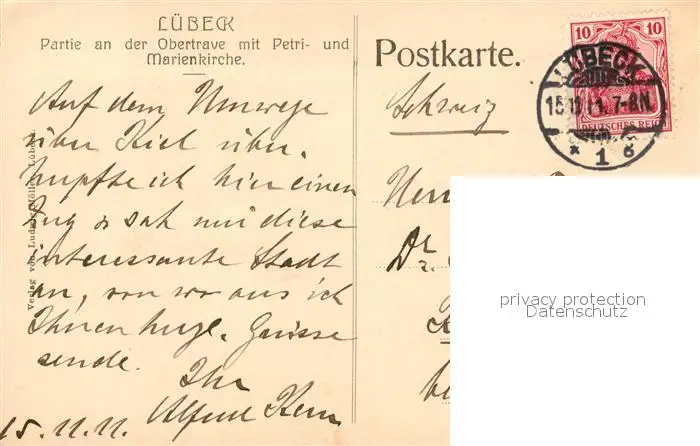 LÜBECK
Partie an der Obertrave mit Petri- und
Marienkirche.
Auf dem Umwege
über Kiel über-
hupfte ich hier einen
Zug & sah mir diese
interessante Stadt
an, von wo aus ich
Ihnen herzl. Grüsse
sende.
Ihr
Alfred Kern
15.11.11.
Verlag von Ludwig Möller, Lübeck
Postkarte.
Schweiz
10 10
DEUTSCHES REICH
LÜBECK
15.11.11. 7-8N.
* 1
Herrn
Dr.
privacy protection
Datenschutz